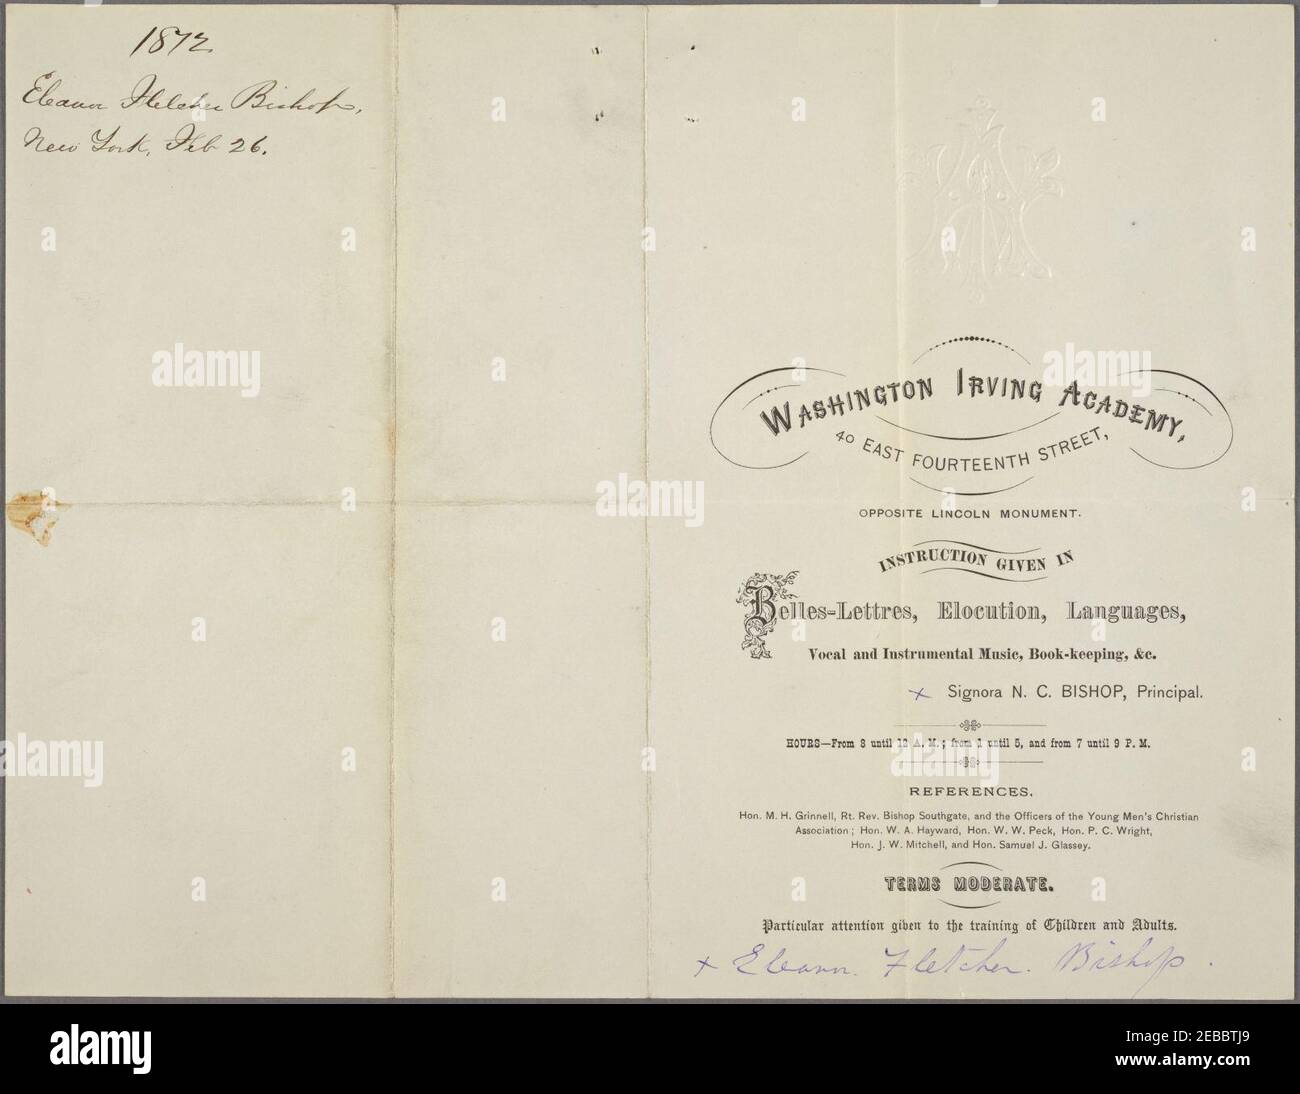 1872
Eleanor Fletcher Bishop,
New York, Feb 26.
WASHINGTON IRVING ACADEMY,
40 EAST FOURTEENTH STREET,
OPPOSITE LINCOLN MONUMENT.
INSTRUCTION GIVEN IN
Belles-Lettres, Elocution, Languages,
Vocal and Instrumental Music, Book-keeping, &c.
x Signora N. C. BISHOP, Principal.
HOURS—From 8 until 12 A. M.; from 1 until 5, and from 7 until 9 P. M.
REFERENCES.
Hon. M. H. Grinnell, Rt. Rev. Bishop Southgate, and the Officers of the Young Men's Christian
Association; Hon. W. A. Hayward, Hon. W. W. Peck, Hon. P. C. Wright,
Hon. J. W. Mitchell, and Hon. Samuel J. Glassey.
TERMS MODERATE.
Particular attention given to the training of Children and Adults.
x Eleanor. Fletcher. Bishop.
alamy
Image ID: 2EBBTJ9
www.alamy.com